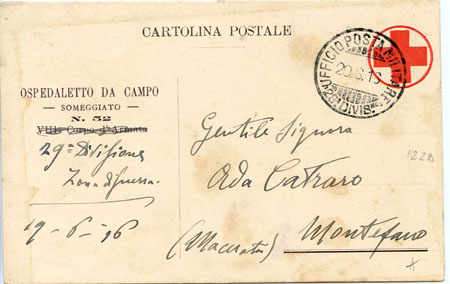 CARTOLINA POSTALE
UFFICIO POSTA MILITARE
20.6.16
OSPEDALETTO DA CAMPO
SOMEGGIATO
N. 52
VIII° Corpo d'Armata
29ª Divisione
Zona di Guerra
19-6-16
Gentile Signora
Ada Catraro
(Macerata) Montefano
122B
x